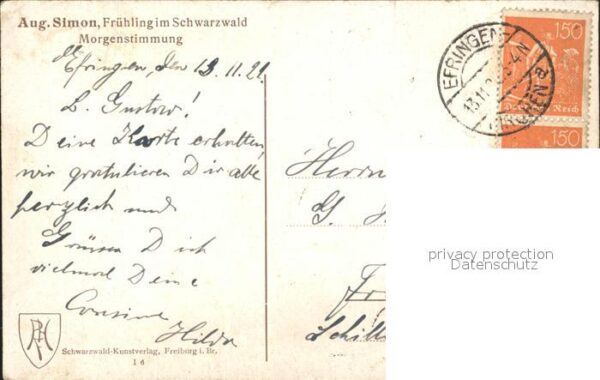 Aug. Simon, Frühling im Schwarzwald
Morgenstimmung
Efringen, den 13.11.21.
L. Gustav!
Deine Karte erhalten,
wir gratulieren Dir alle
herzlich und
Grüssen Dich
vielmal Deine
Cousine
Hilda
Schwarzwald-Kunstverlag, Freiburg i. Br.
16
EFRINGEN
KIRCHEN
150
Deutsches Reich
150
Herrn
G.
Fr
Schill
privacy protection
Datenschutz